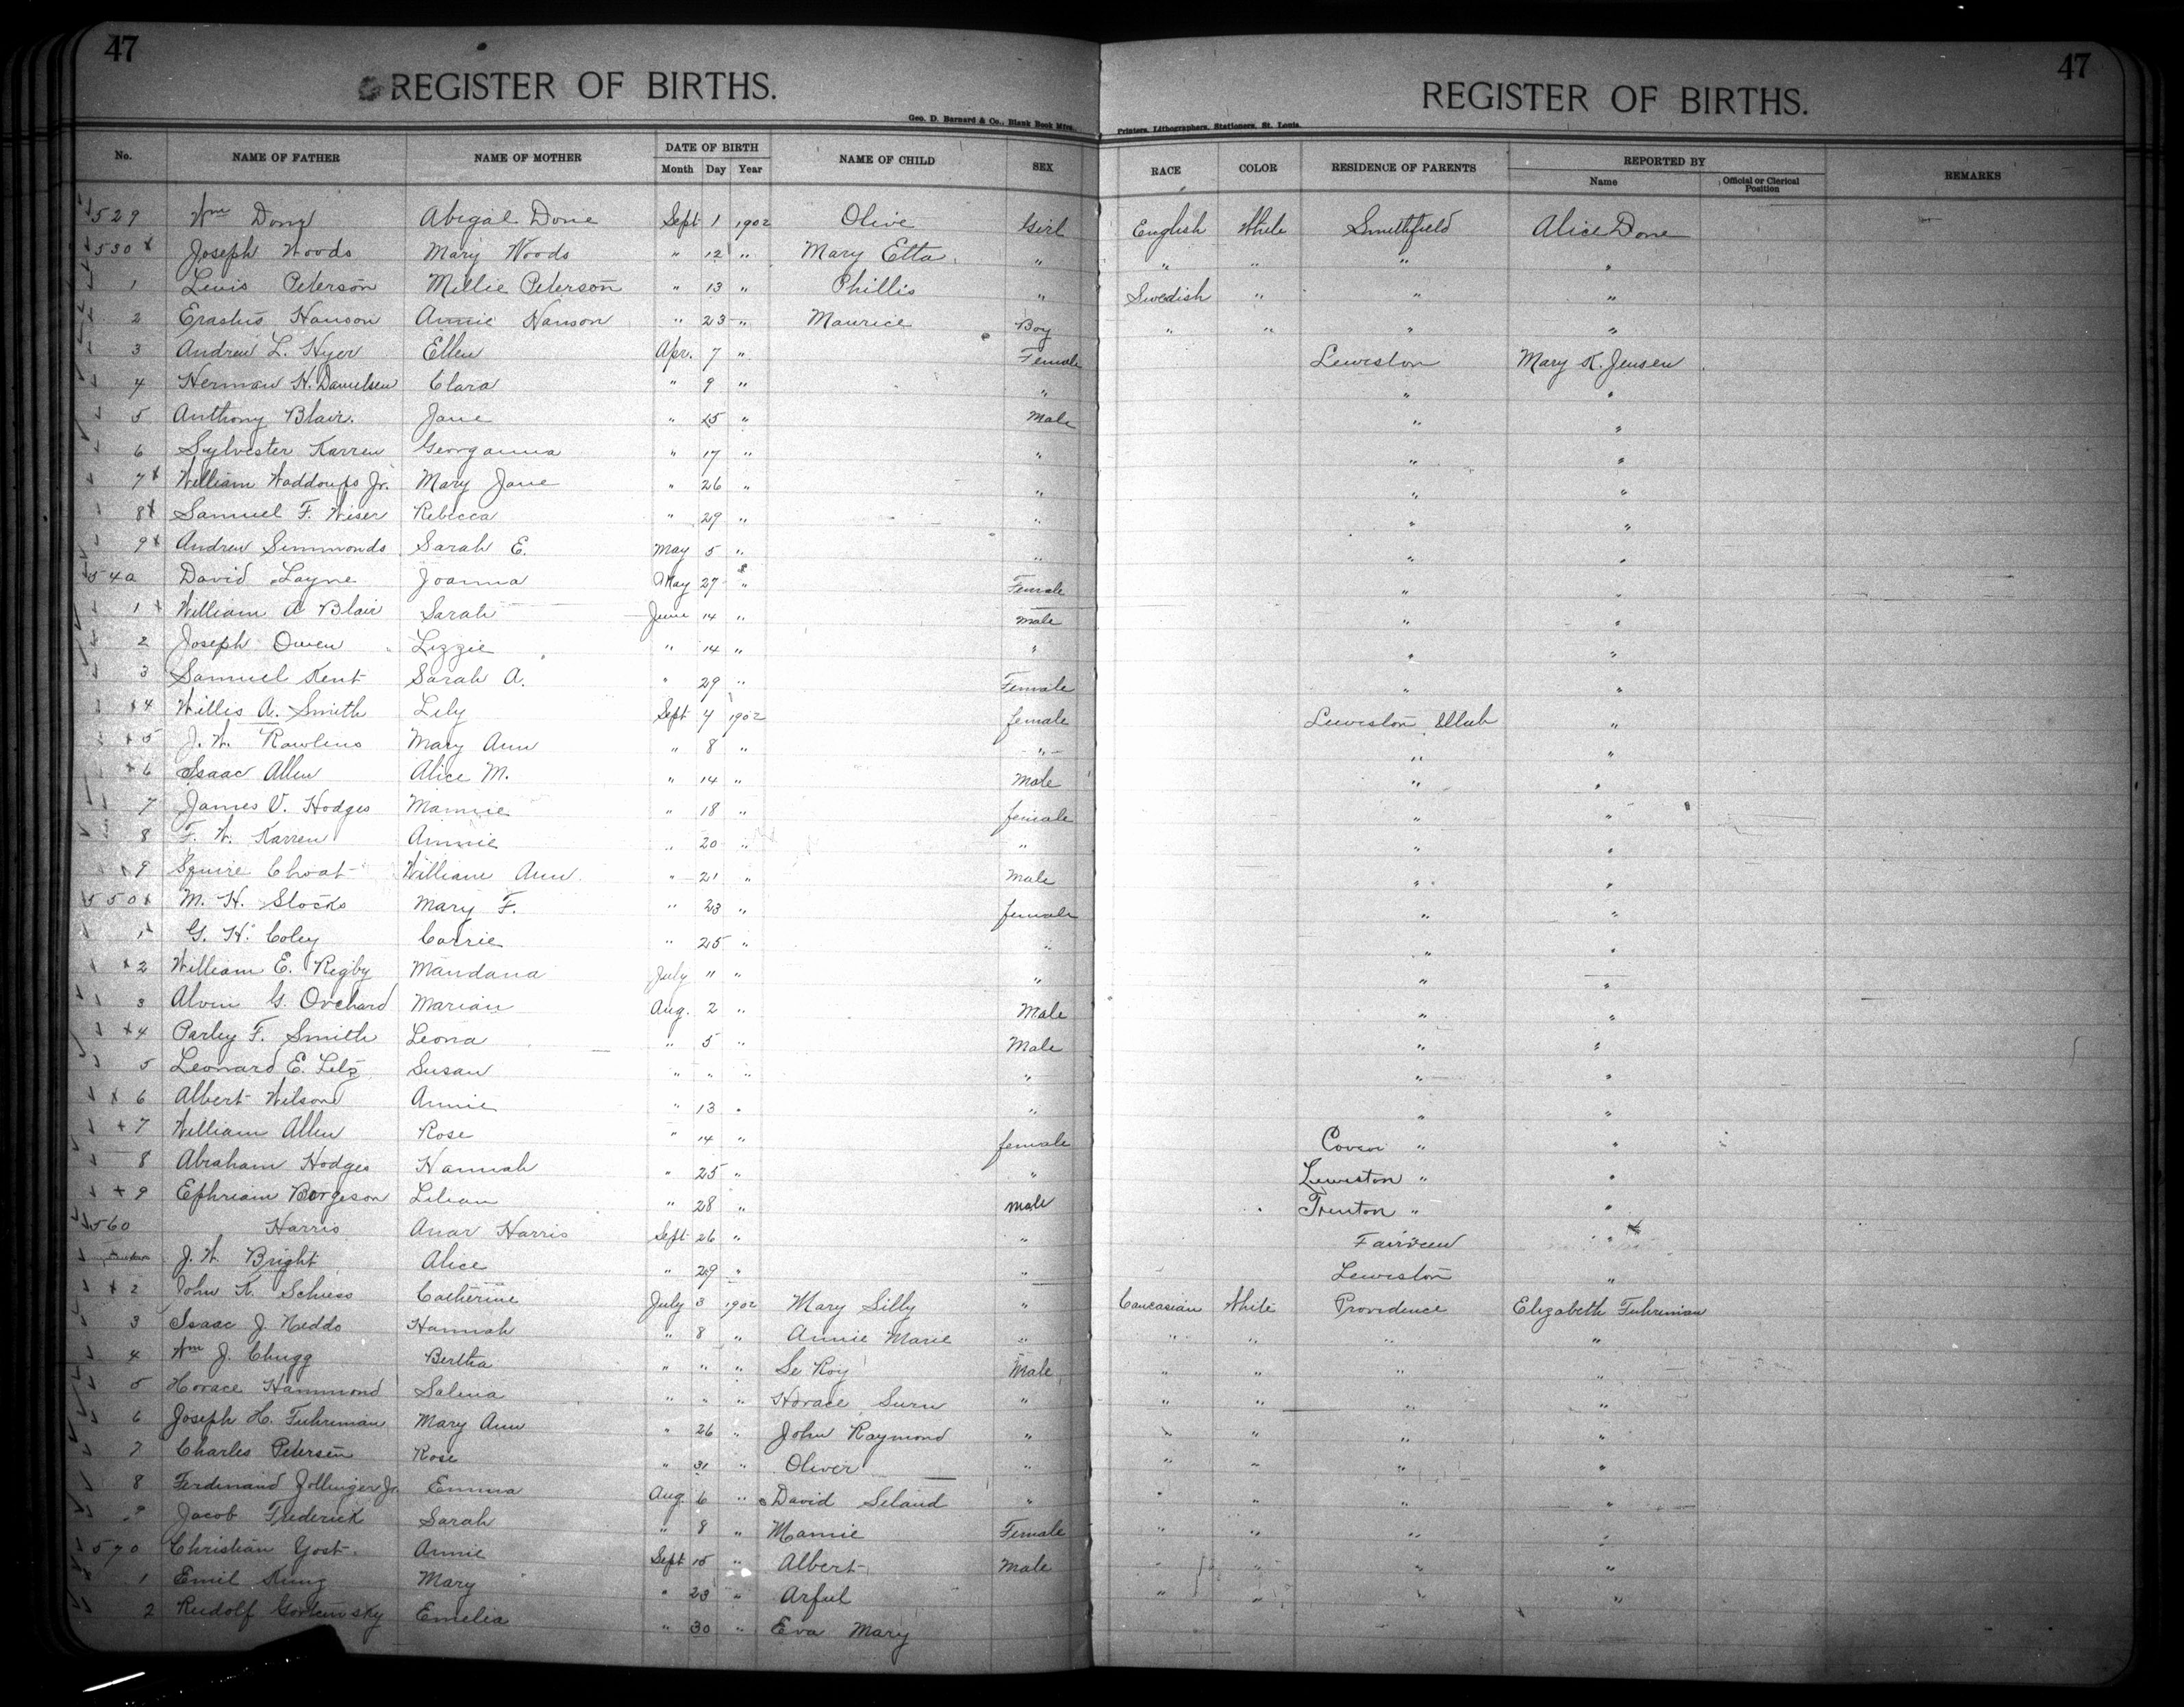 47
REGISTER OF BIRTHS.
Geo. D. Barnard & Co., Blank Book Mfrs.,
47
REGISTER OF BIRTHS.
Printers, Lithographers, Stationers, St. Louis.
No. NAME OF FATHER NAME OF MOTHER DATE OF BIRTH Month Day Year NAME OF CHILD SEX RACE COLOR RESIDENCE OF PARENTS REPORTED BY Name Official or Clerical Position REMARKS
529 Wm Done Abigal Done Sept 1 1902 Olive Girl English White Smithfield Alice Done
530 x Joseph Woods Mary Woods " 12 " Mary Etta " " " " "
1 Lewis Peterson Millie Peterson " 13 " Phillis " Swedish " " "
2 Erastus Hanson Annie Hanson " 23 " Maurice Boy " " " "
3 Andrew L. Hyer Ellen Apr. 7 " Female Lewiston Mary K. Jensen
4 Herman H. Danielsen Clara " 9 " " " "
5 Anthony Blair. Jane " 25 " Male " "
6 Sylvester Karren Georganna " 17 " " " "
7 x William Waddoups Jr. Mary Jane " 26 " " " "
8 x Samuel F. Wiser Rebecca " 29 " " " "
9 x Andrew Simmonds Sarah E. May 5 " " " "
540 David Layne Joanna May 27 " Female " "
1 x William A Blair Sarah June 14 " Male " "
2 Joseph Owen Lizzie " 14 " " " "
3 Samuel Kent Sarah A. " 29 " Female " "
x 4 Willis A. Smith Lily Sept 4 1902 female Lewiston, Utah "
x 5 J. W. Rawlins Mary Ann " 8 " " " "
x 6 Isaac Allen Alice M. " 14 " Male " "
7 James V. Hodges Mamie " 18 " female " "
8 F. W. Karren Annie " 20 " " " "
x 9 Squire Choat William Ann " 21 " Male " "
550 x M. H. Stocks Mary F. " 23 " female " "
1 x G. H. Coley Carrie " 25 " " " "
x 2 William E. Rigby Mandana July 11 " " " "
3 Alvin G. Orchard Marian Aug. 2 " Male " "
x 4 Parley F. Smith Leona " 5 " Male " "
5 Leonard E. Susan " " " " " "
x 6 Albert Wilson Annie " 13 " " " "
x 7 William Allen Rose " 14 " female " "
8 Abraham Hodges Hannah " 25 " " Lewiston " "
x 9 Ephriam Borgeson Lilian " 28 " male Trenton " "
560 Harris Anar Harris Sept 26 " " Fairview "
J. W. Bright Alice " 29 " " Lewiston "
x 2 John K. Schiess Catherine July 3 1902 Mary Lilly " Caucasian White Providence Elizabeth Fuhriman
3 Isaac J. Hannah " 8 " Annie Marie " " " " "
4 Wm J. Chugg Bertha " " " Le Roy Male " " " "
5 Horace Hammond Salina " " " Horace " " " " "
6 Joseph H. Fuhriman Mary Ann " 26 " John Raymond " " " " "
7 Charles Petersen Rose " 31 " Oliver " " " " "
8 Ferdinand Zollinger Jr. Emma Aug. 6 " David Leland " " " " "
9 Jacob Frederick Sarah " 8 " Mamie Female " " " "
570 Christian Yost Annie Sept 15 " Albert Male " " " "
1 Emil Kung Mary " 23 " Arful " " " "
2 Rudolf Emelia " 30 " Eva Mary